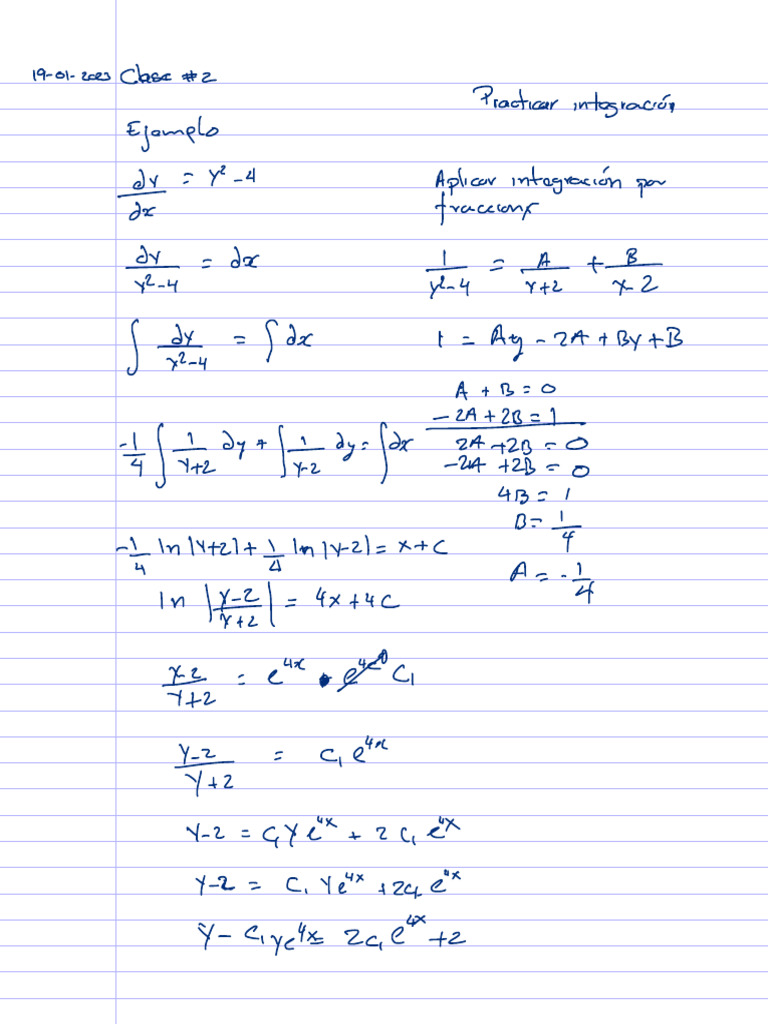 19-01-2023 Clase #2
Practicar integración
Ejemplo
dy/dx = y² - 4
Aplicar integración por
fracciones
dy/(y²-4) = dx
1/(y²-4) = A/(y+2) + B/(y-2)
∫ dy/(y²-4) = ∫ dx
1 = Ay - 2A + By + B
A + B = 0
-2A + 2B = 1
-1/4 ∫ 1/(y+2) dy + ∫ 1/(y-2) dy = ∫ dx
2A + 2B = 0
-2A + 2B = 0
4B = 1
B = 1/4
A = -1/4
-1/4 ln|y+2| + 1/4 ln|y-2| = x + C
ln |(y-2)/(y+2)| = 4x + 4C
(y-2)/(y+2) = e^4x • C₁
(y-2)/(y+2) = C₁ e^4x
y-2 = C₁ y e^4x + 2 C₁ e^4x
y-2 = C₁ y e^4x + 2C₁ e^4x
y - C₁ y e^4x = 2C₁ e^4x + 2